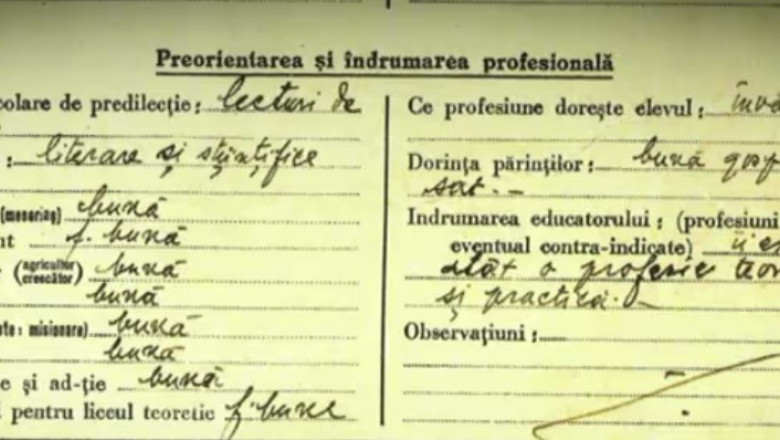 Preorientarea și îndrumarea profesională
olare de predilecție: lecturi de
: literare și științifice
(menaring) bună
nt f. bună
(agricultor crescător) bună
bună
te: misionara) bună
bună
e și ad-ție bună
pentru liceul teoretic f. bune
Ce profesiune dorește elevul: învă
Dorința părinților: bună gosp
sat. -
Indrumarea educatorului: (profesiuni
eventual contra-indicate)
atât o profesie teor
și practică. -
Observațiuni: -